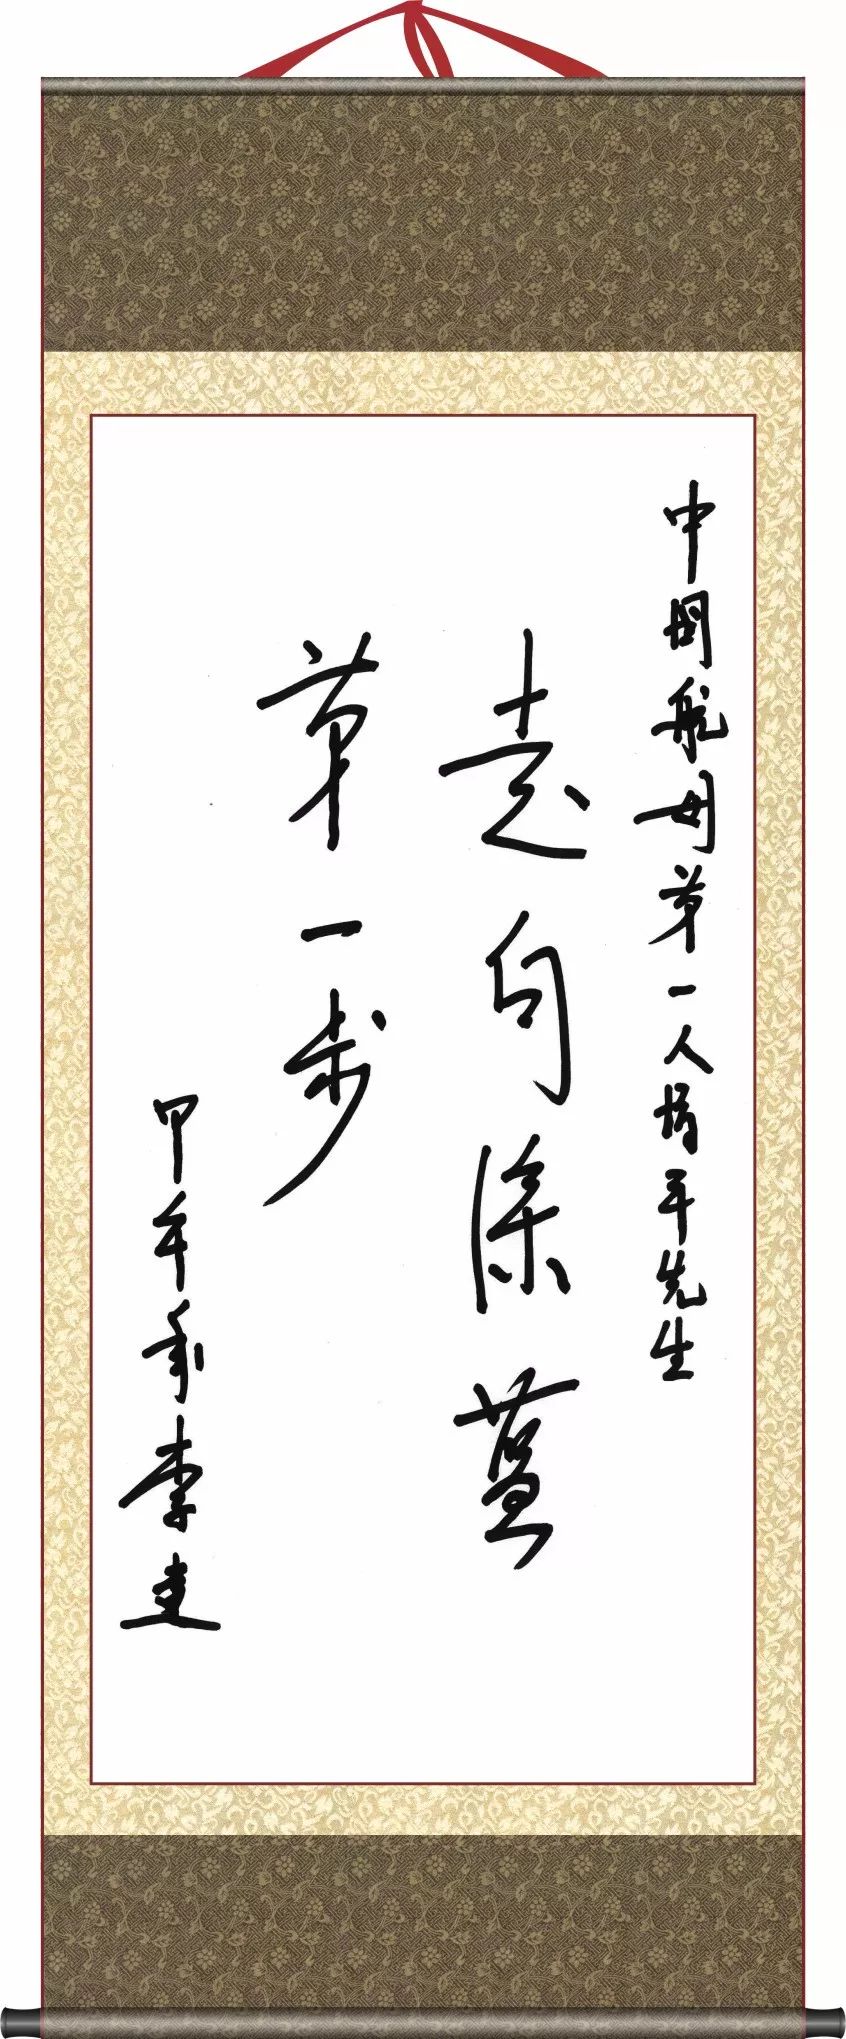 中国航母第一人增平先生
走向深蓝
第一步
甲午秋李建